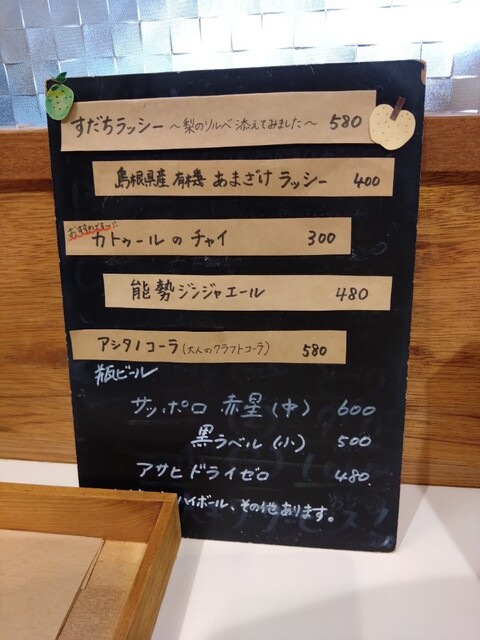 すだちラッシー ～梨のソルベ添えてみました～ 580
島根県産 有機 あまざけ ラッシー 400
おすすめです!!
カトゥールのチャイ 300
能勢ジンジャエール 480
アシタノコーラ(大人のクラフトコーラ) 580
瓶ビール
サッポロ 赤星(中) 600
黒ラベル(小) 500
アサヒドライゼロ 480
ハイボール、その他あります。